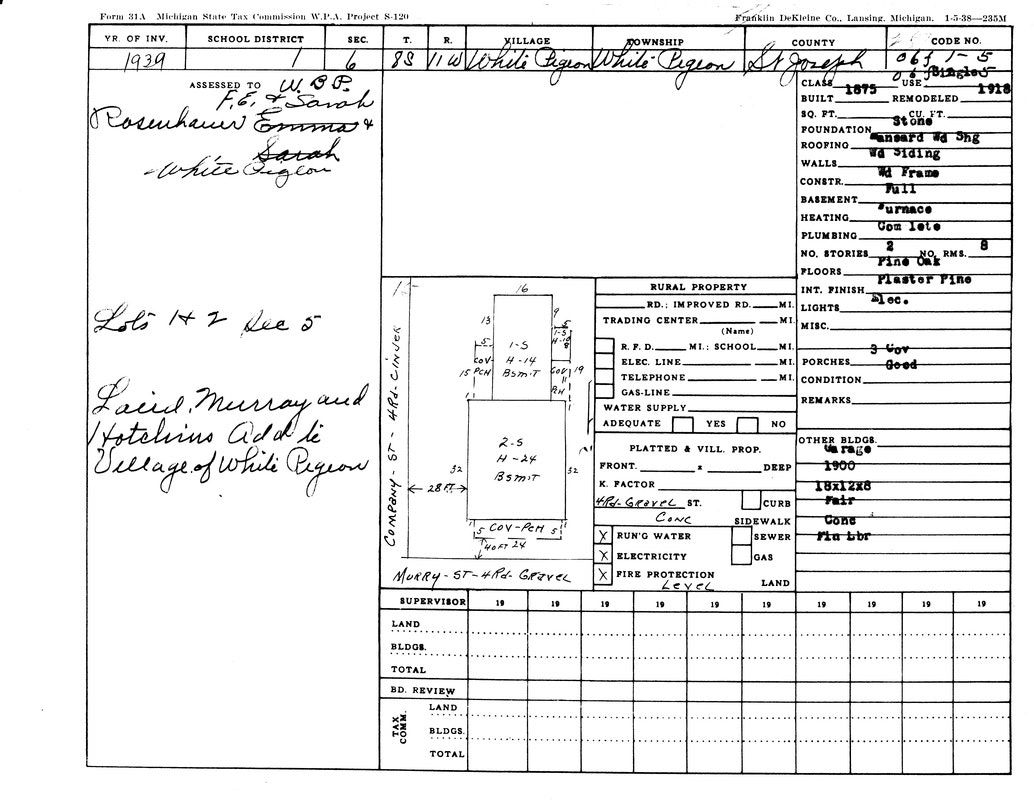 Form 31A Michigan State Tax Commission W.P.A. Project S-120
Franklin DeKleine Co., Lansing, Michigan. 1-5-38—235M
YR. OF INV. SCHOOL DISTRICT SEC. T. R. VILLAGE TOWNSHIP COUNTY CODE NO.
1939 1 6 8S 11W White Pigeon White Pigeon St Joseph 1-5
ASSESSED TO W. B. P.
F. E. & Sarah
Rosenhauer Emma &
Sarah
White Pigeon
Lots 1 & 2 Sec 5
Laird, Murray and
Hotchins Add to
Village of White Pigeon
15
16
13
9
5
1-S
H-14
Bsm'T
5
COV
PCH
15
1-S
H-10
8
COV
11
PCH
19
2-S
H-24
Bsm'T
32
32
28 FT
5 COV-PCH 5
40 FT 24
COMPANY-ST-4Rd-CINDER
MURRY-ST-4Rd-GRAVEL
RURAL PROPERTY
RD.; IMPROVED RD. MI.
TRADING CENTER MI.
(Name)
R. F. D. MI.; SCHOOL MI.
ELEC. LINE MI.
TELEPHONE MI.
GAS-LINE
WATER SUPPLY
ADEQUATE YES NO
PLATTED & VILL. PROP.
FRONT. x DEEP
K. FACTOR
4Rd-GRAVEL ST. CURB
CONC SIDEWALK
X RUN'G WATER SEWER
X ELECTRICITY GAS
X FIRE PROTECTION
LEVEL LAND
CLASS USE Single
BUILT 1875 REMODELED 1918
SQ. FT. CU. FT.
FOUNDATION Stone
ROOFING Mansard Wd Shg
WALLS Wd Siding
CONSTR. Wd Frame
BASEMENT Full
HEATING Furnace
PLUMBING Com lete
NO. STORIES 2 NO. RMS. 8
FLOORS Pine Oak
INT. FINISH Plaster Pine
LIGHTS Elec.
MISC.
PORCHES 3 Cov
CONDITION Good
REMARKS
OTHER BLDGS.
Garage
1900
18x12x8
Fair
Conc
Pln Lbr
SUPERVISOR 19 19 19 19 19 19 19 19 19
LAND
BLDGS.
TOTAL
BD. REVIEW
TAX COMM.
LAND
BLDGS.
TOTAL